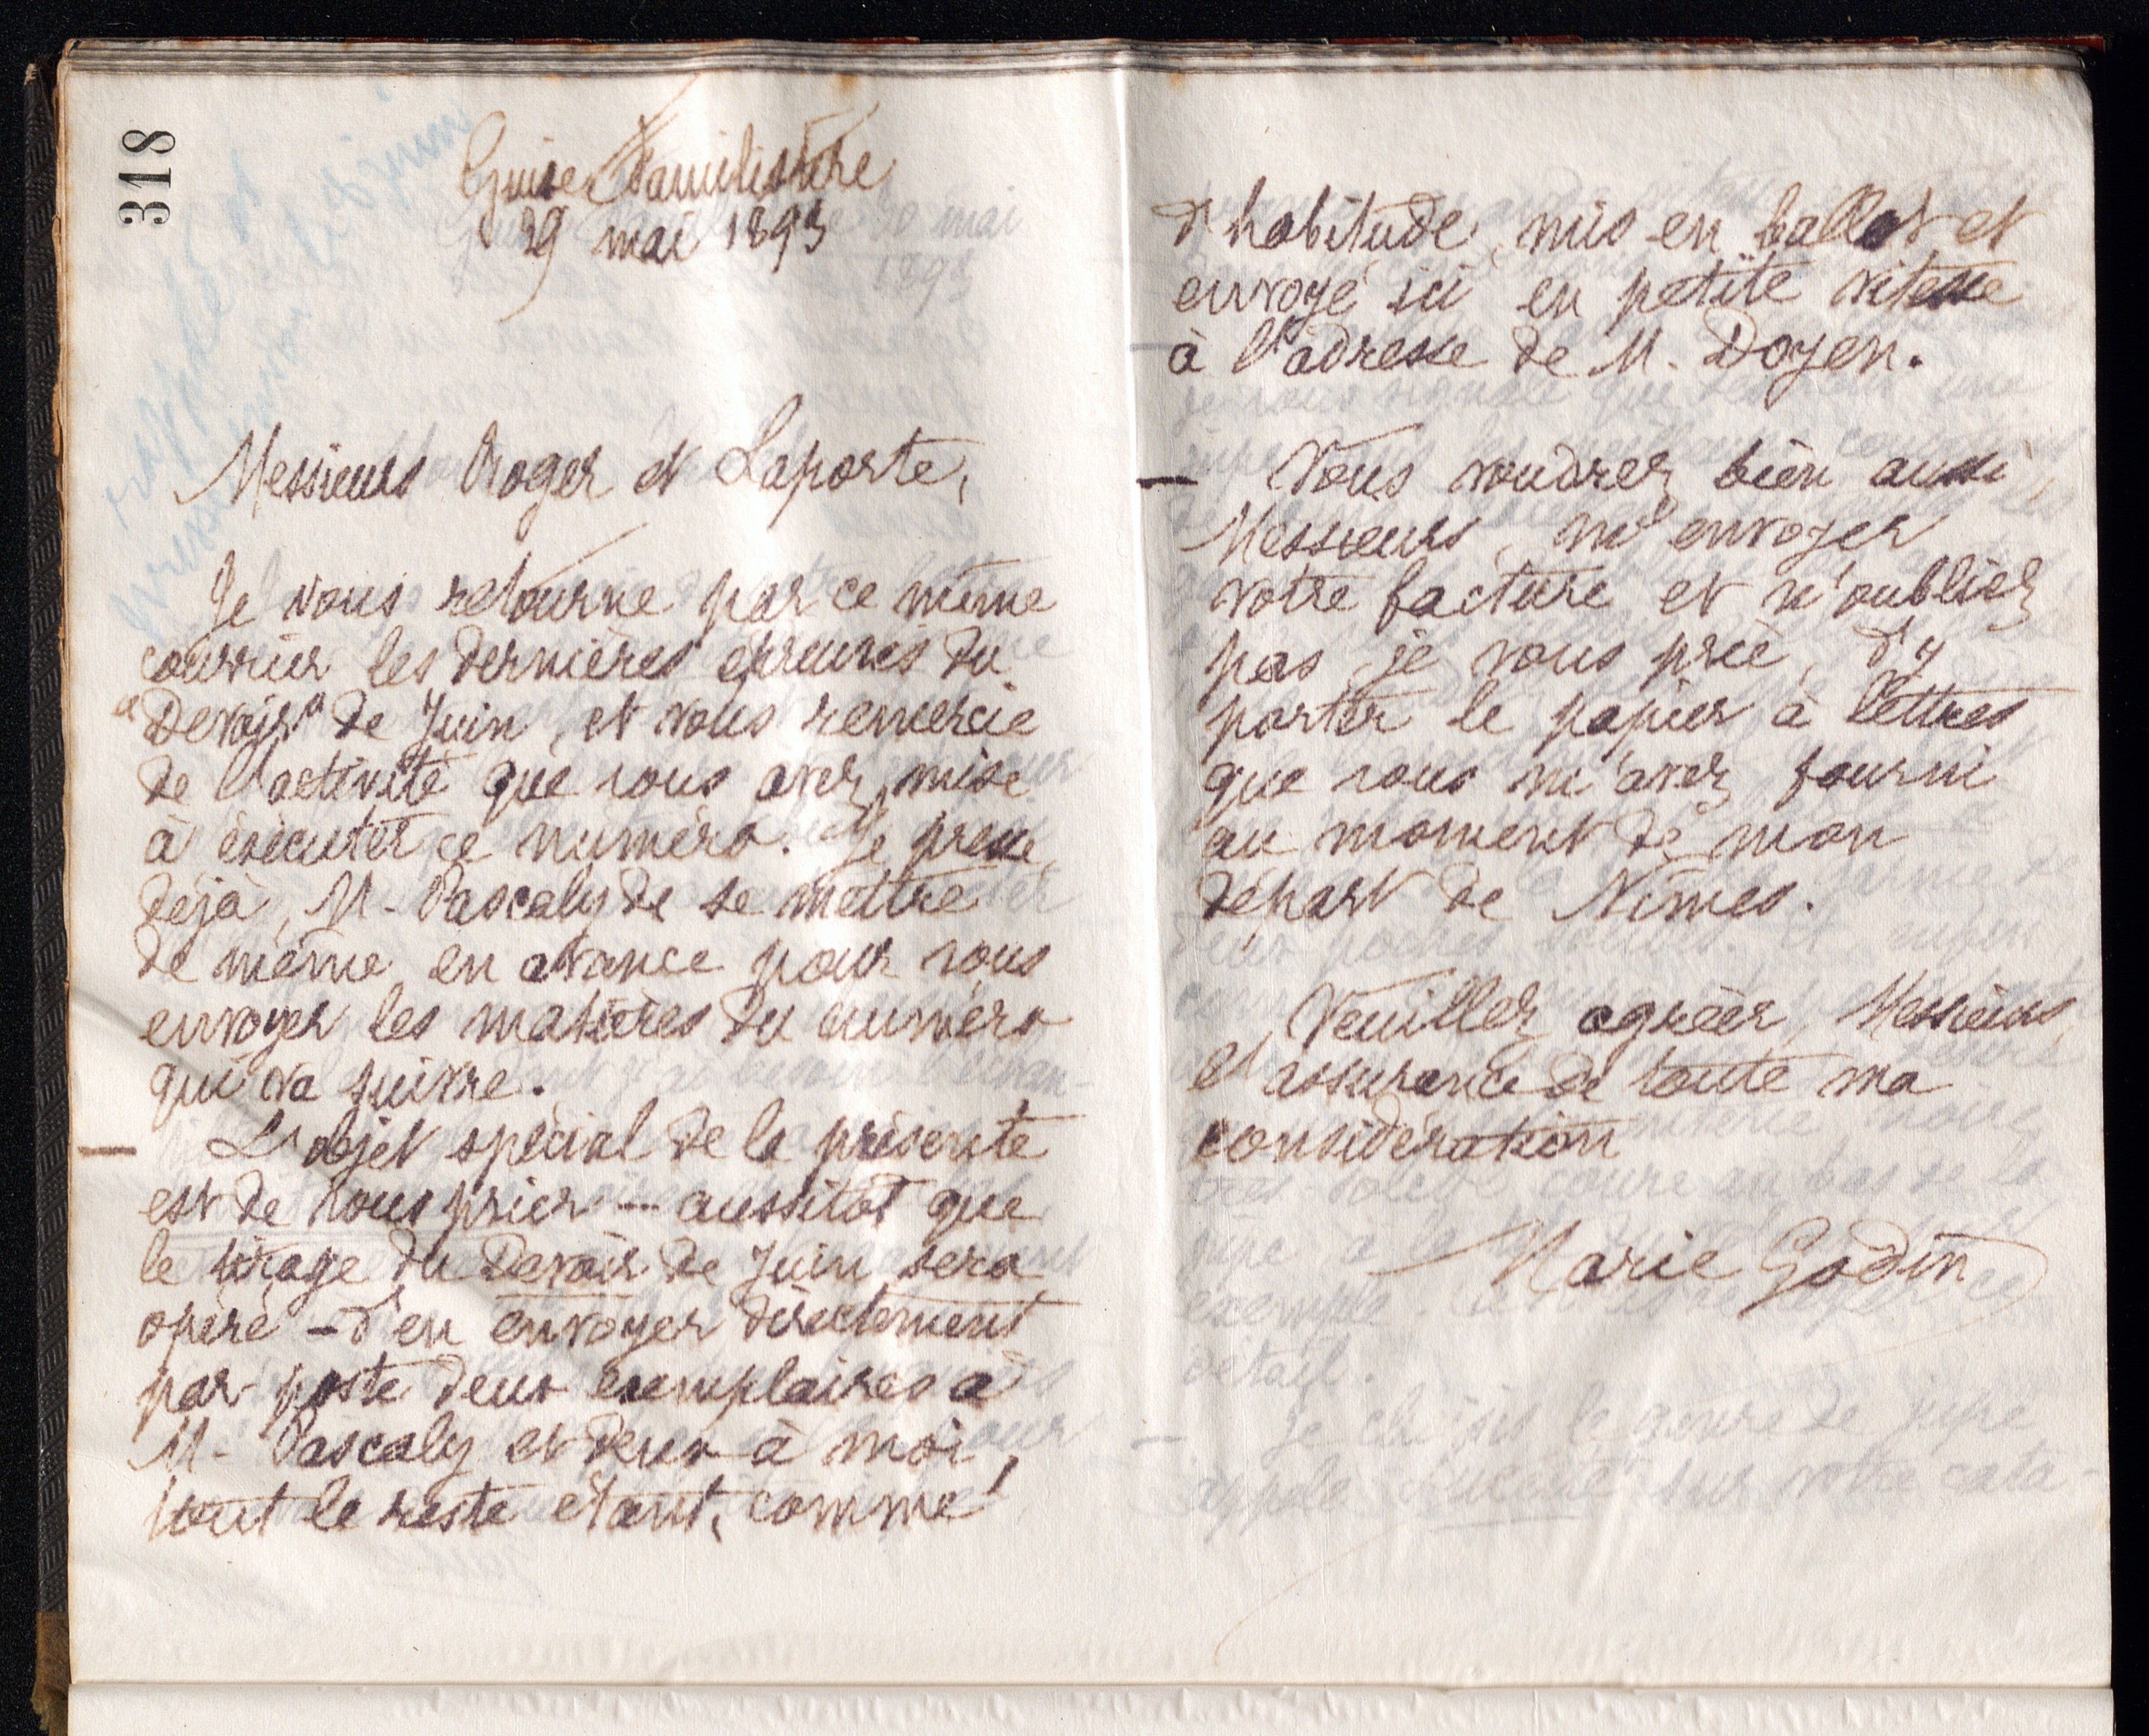 318
Guise Familistère
29 mai 1893
Messieurs Roger et Laporte,
Je vous retourne par ce même
courrier les dernières épreuves du
"Devoir" de Juin, et vous remercie
de l'activité que vous avez mise
à exécuter ce numéro. Je presse,
déjà, M. Pascaly de se mettre
de même en avance pour vous
envoyer les matières du numéro
qui va suivre.
L'objet spécial de la présente
est de vous prier -- aussitôt que
le tirage du Devoir de Juin sera
opéré - d'en envoyer directement
par poste deux exemplaires à
M. Pascaly et deux à moi,
tout le reste étant, comme
d'habitude, mis en ballot et
envoyé ici en petite vitesse
à l'adresse de M. Doyen.
Vous voudrez bien aussi,
Messieurs, m'envoyer
votre facture et n'oubliez
pas, je vous prie, d'y
porter le papier à lettres
que vous m'avez fourni
au moment de mon
départ de Nîmes.
Veuillez agréer, Messieurs,
l'assurance de toute ma
considération
Marie Godin